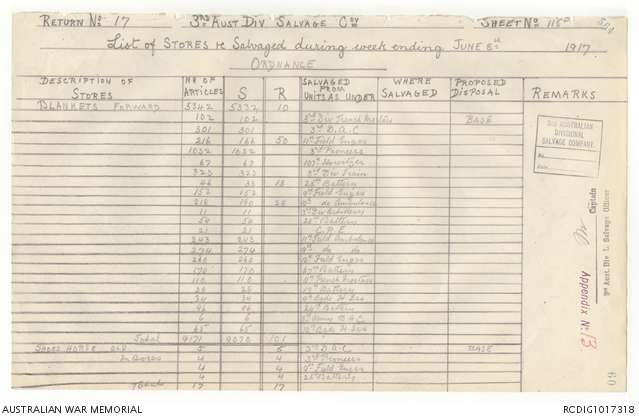 RETURN No 17 3RD AUST DIV SALVAGE COY SHEET No 115
List of STORES re Salvaged during week ending JUNE 8th 1917
ORDNANCE
DESCRIPTION OF STORES No OF ARTICLES S R SALVAGED FROM UNITS AS UNDER WHERE SALVAGED PROPOSED DISPOSAL REMARKS
BLANKETS FORWARD 5342 5332 10
102 102 3rd Div Trench Mortars BASE
301 301 3rd D.A.C
216 166 50 11th Field Engrs
1032 1032 3rd Pioneers
67 67 107th Howitzer
323 323 3rd Div Train
46 33 13 Battery
152 152 9th Field Engrs
218 190 28 9th do Ambulance
11 11
54 54 Battery
21 21 C.R.E
243 243 11th Field Ambulance
274 274 9th do do
260 260 Field Engrs
170 170 Battery
110 110 Trench Mortars
26 26 Battery
34 34 9th Bde H Qrs
46 46 Battery
6 6 Army
65 65 10th Bde H Qrs
Total 9171 9070 101
SHOES HORSE OLD 5 5 3rd D.A.C BASE
In Boxes 4 4 3rd Pioneers
4 4 9th Field Engrs
4 4 Battery
Total 17 17
3RD AUSTRALIAN
DIVISIONAL
SALVAGE COMPANY.
No.
Date
Captain
3rd Aust. Div l. Salvage Officer
Appendix No 13
60
AUSTRALIAN WAR MEMORIAL
RCDIG1017318